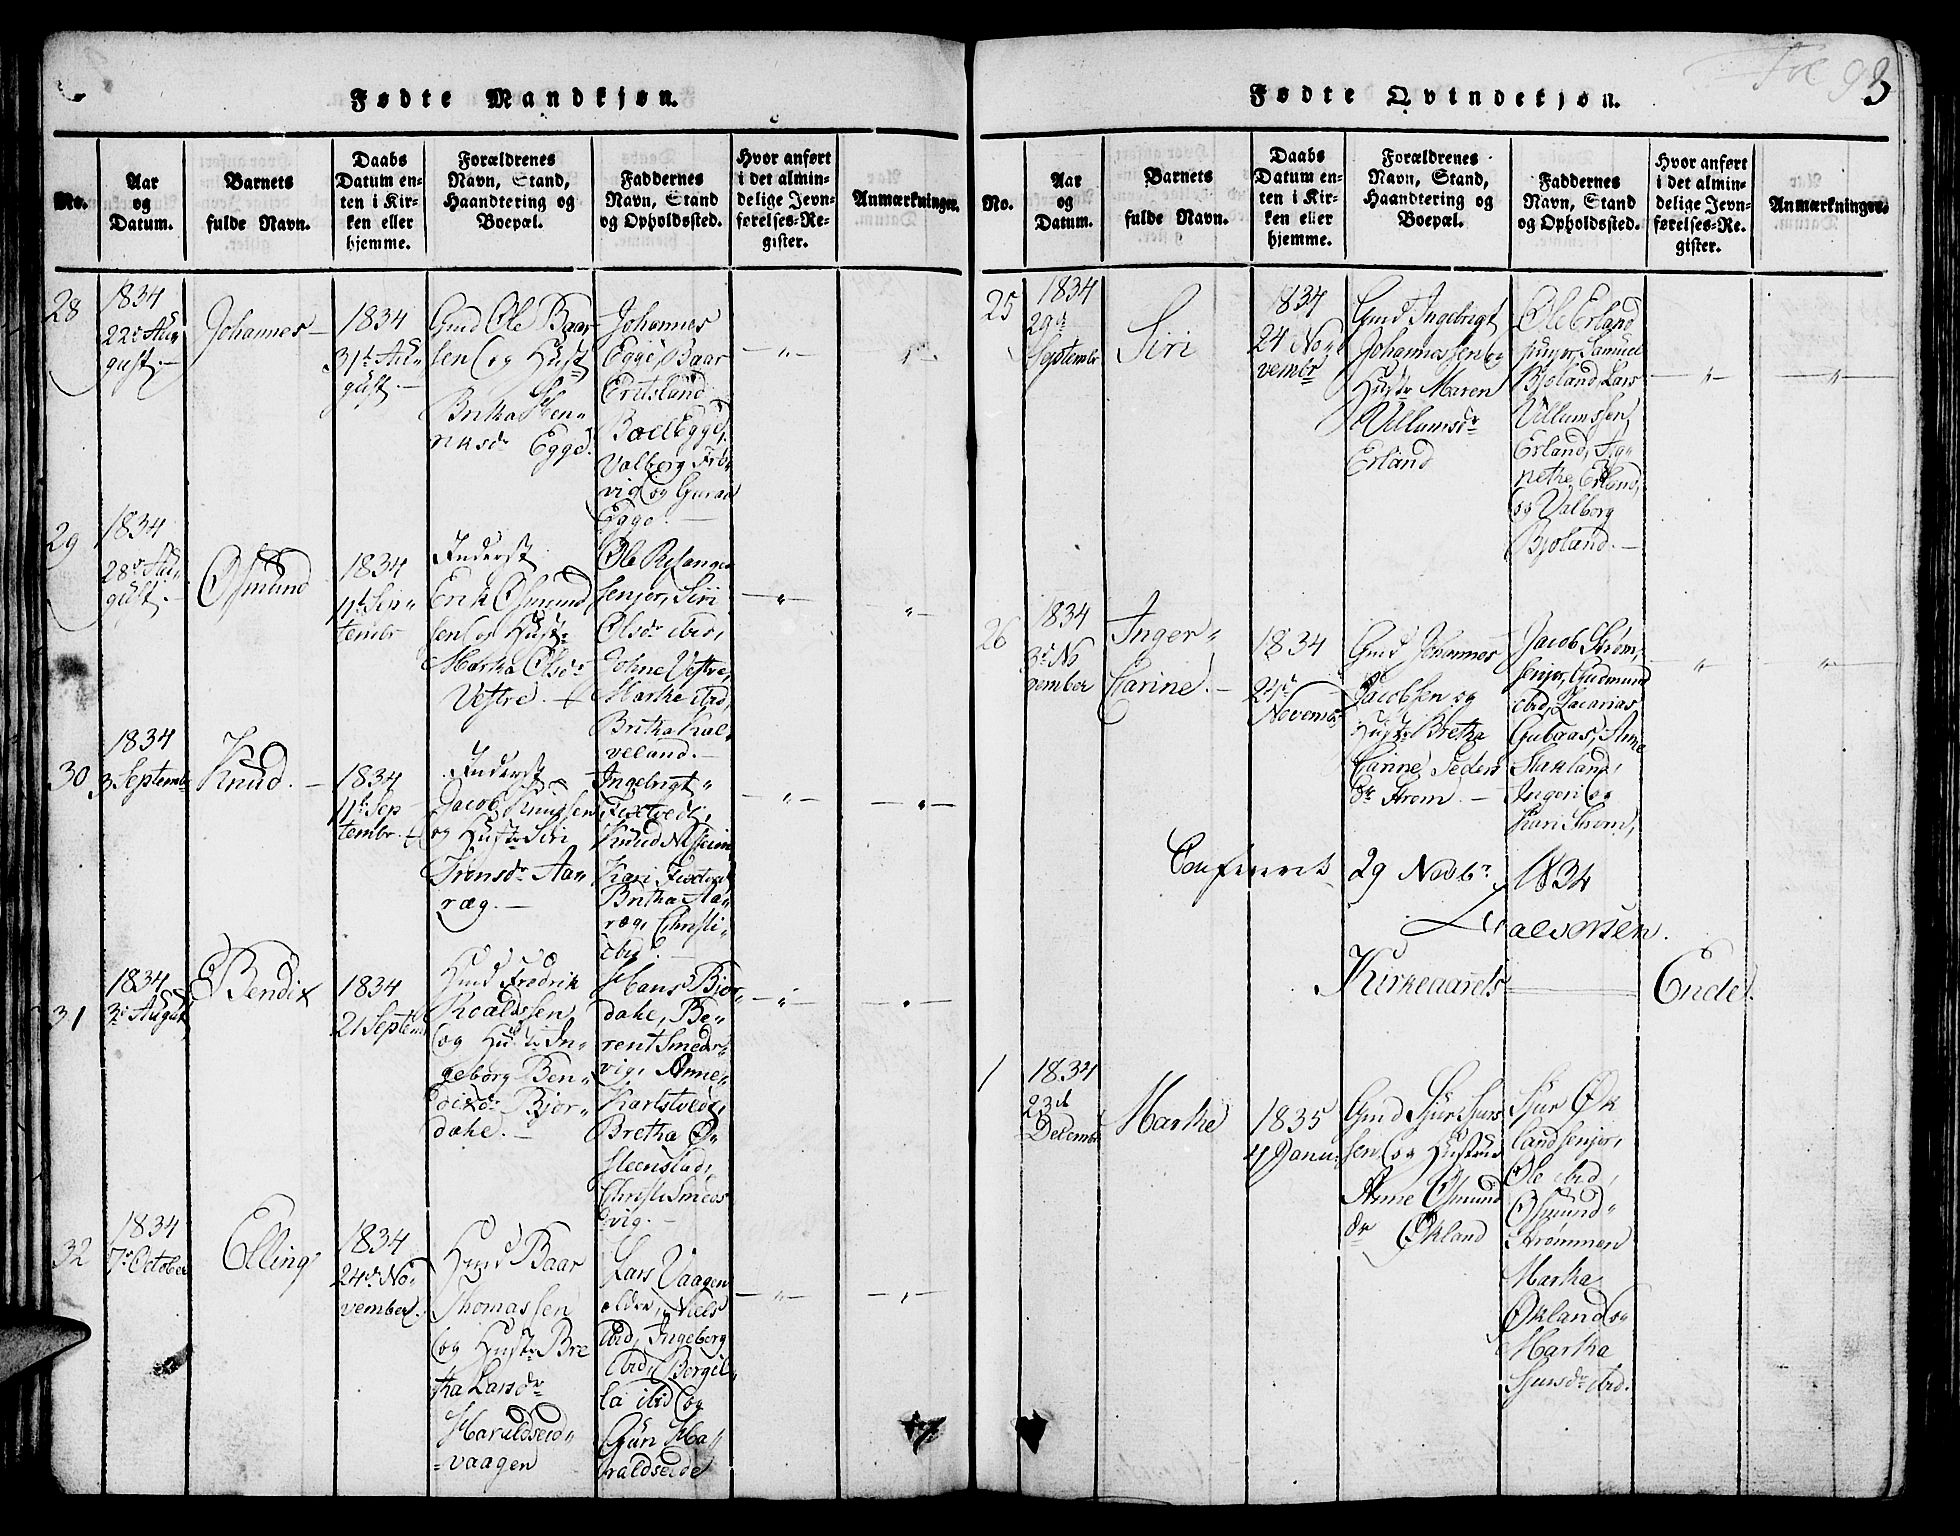 Fødte Mandkjøn.
No.
Aar
og
Datum.
Barnets
fulde Navn.
Daabs
Datum en-
ten i Kir-
ken eller
hjemme.
Forældrenes
Navn, Stand,
Haandtering og
Boepæl.
Faddernes
Navn, Stand
og Opholdssted.
Hvor anført
i det almin-
delige Jevn-
førelses-Re-
gister.
Anmærkninger.
28
1834
22de Au„
gust.
Johannes
1834
31te Au„
gust.
Gmd Ole Baar
sen og Hustr
Britha Hen„
riksdr Egge.
Johannes
Egge, Baar
Eritsland
Boel Egge,
Valberg
vig og Guran
Egge.
29
1834
28de Au„
gust.
Osmund
1834
11te Sep„
tembr
Inderst
Erik Osmund
sen og Hustr
Martha Olsdr
Vestre.
Ole Refangen
senjor, Siri
Olsdr ibid,
Johne Vestre,
Marthe ibid,
Britha Kal„
veland.
30
1834
3 Septembr
Knud.
1834
11te Sep
tembr.
Inderst
Jacob Knudsen
og Hustr Siri
Tronsdr Aa„
ræg.
Ingebrigt
Fixtvedt,
Knud Nesheim
Kari Fixtvedt
Britha Aa„
ræg, Christi
ibid.
31
1834
3de August
Bendix
1834
21 Septem
Hmd Fredrik
Roaldssen
og Hustr In„
geborg Ben„
dixdr Bjor„
dahe.
Hans Bjor„
dahe, Be„
rent Smeds„
vig, Anne
Karlstvedt,
Bretha Ø„
steenstad,
Christi Smeds
vig.
32
1834
7de October
Elling
1834
24de No„
vember.
Hmd Baar
Thomassen
og Hustr Bre
tha Larsdr
Haraldseid„
vaagen
Lars Vaagen
older, Niels
ibid, Ingeborg
ibid, Borgil„
la ibid og
Guri Ha„
raldseide
Fol 93
Fødte Qvindekjøn.
No.
Aar
og
Datum.
Barnets
fulde Navn.
Daabs
Datum en-
ten i Kir-
ken eller
hjemme.
Forældrenes
Navn, Stand,
Haandtering og
Boepæl.
Faddernes
Navn, Stand
og Opholdssted.
Hvor anført
i det almin-
delige Jevn-
førelses-Re-
gister.
Anmærkninger.
25
1834
29de
Septembr
Siri
1834
24 No„
vembr
Gmd Ingebrigt
Johannessen og
Hustr Maren
Villumsdr
Erland
Ole Erland
junjor, Samuel
Bjoland, Lars
Villumssen
Erland, Ag„
nethe Erland,
og Valborg
Bjoland.
26
1834
3de No
vember
Inger„
Carine.
1834
24de
Novembr
Gmd Johannes
Jacobsen og
Hustr Bretha
Carine Peders
dr Strøm.
Jacob Strøm,
senjor, Gudmund
ibid, Zacarias
Gutaas, Anne
Stakland,
Ingeri og
Kari Strøm,
Confereret 29 Novbr 1834
Kirkeaarets Ende.
1
1834
23de
Decembr
Marthe
1835
4 Janu„
Gmd Sjur Sjurs
sen og Hustrue
Anne Osmund
dr Økland
Sjur Øk
land senjor,
Ole ibid,
Osmund
Strømmen
Martha
Økland og
Martha
Sjursdr ibid.